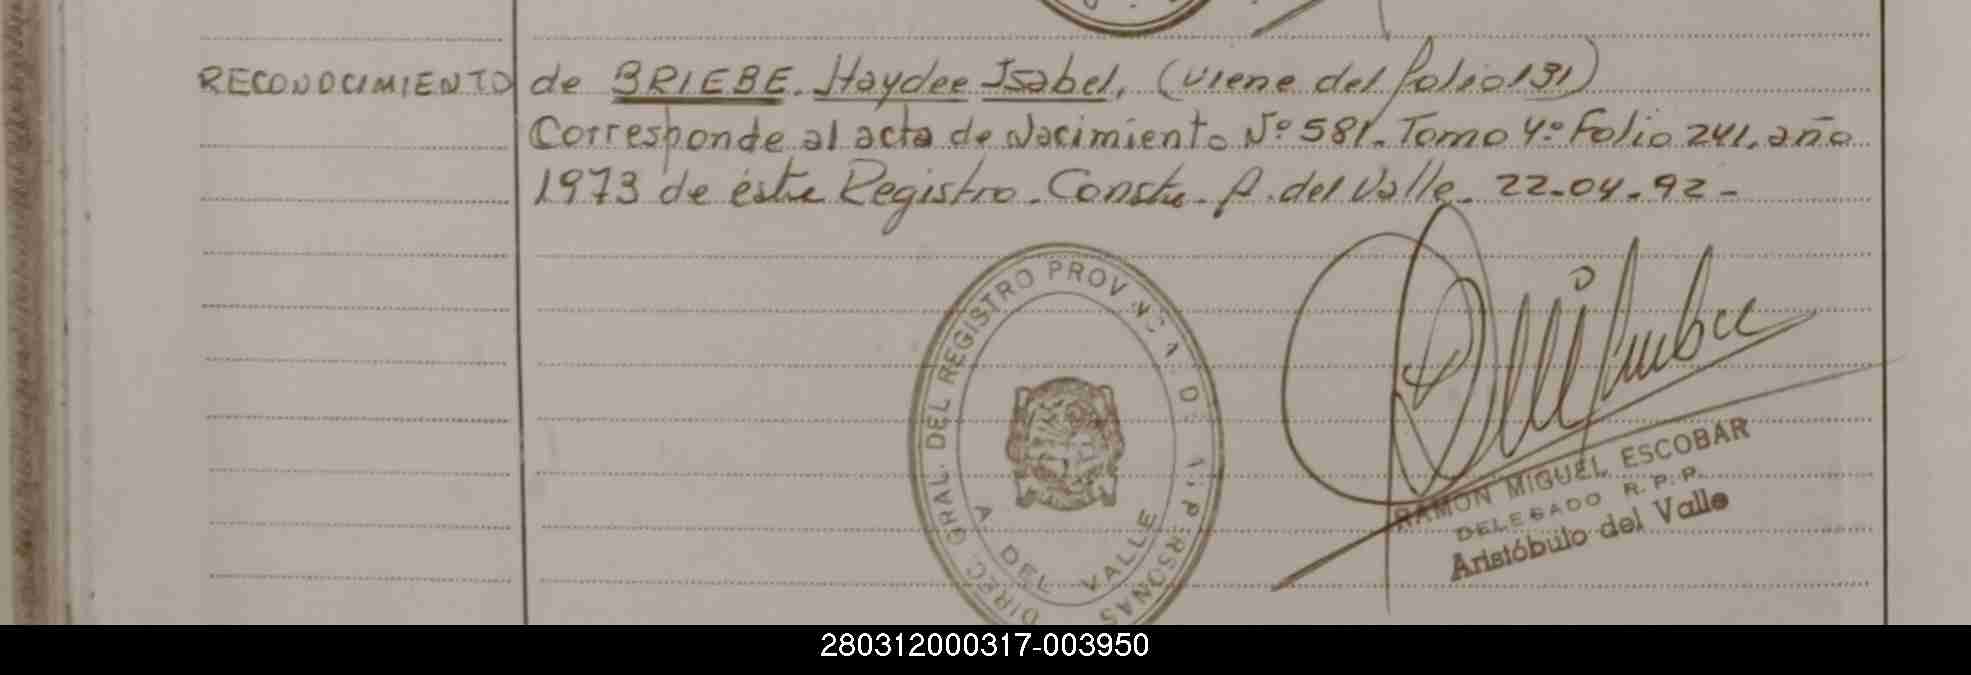 RECONOCIMIENTO de BRIEBE. Haydee Isabel. (viene del folio 131)
Corresponde al acta de Nacimiento Nº 581. Tomo 4º Folio 241. año
1973 de éste Registro. Conste. A. del Valle. 22-04-92-
DIREC. GRAL. DEL REGISTRO PROVINCIAL DE PERSONAS
A. DEL VALLE
RAMON MIGUEL ESCOBAR
DELEGADO R. P. P.
Aristóbulo del Valle
280312000317-003950